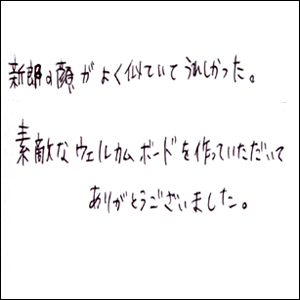 新郎の顔がよく似ていてうれしかった。
素敵なウェルカムボードを作っていただいて
ありがとうございました。